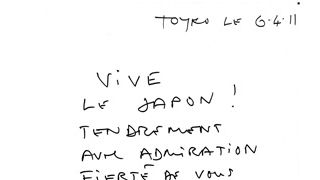 TOYKO LE 6.4.11
VIVE
LE JAPON !
TENDREMENT
AVEC ADMIRATION
FIERTÉ DE VOUS